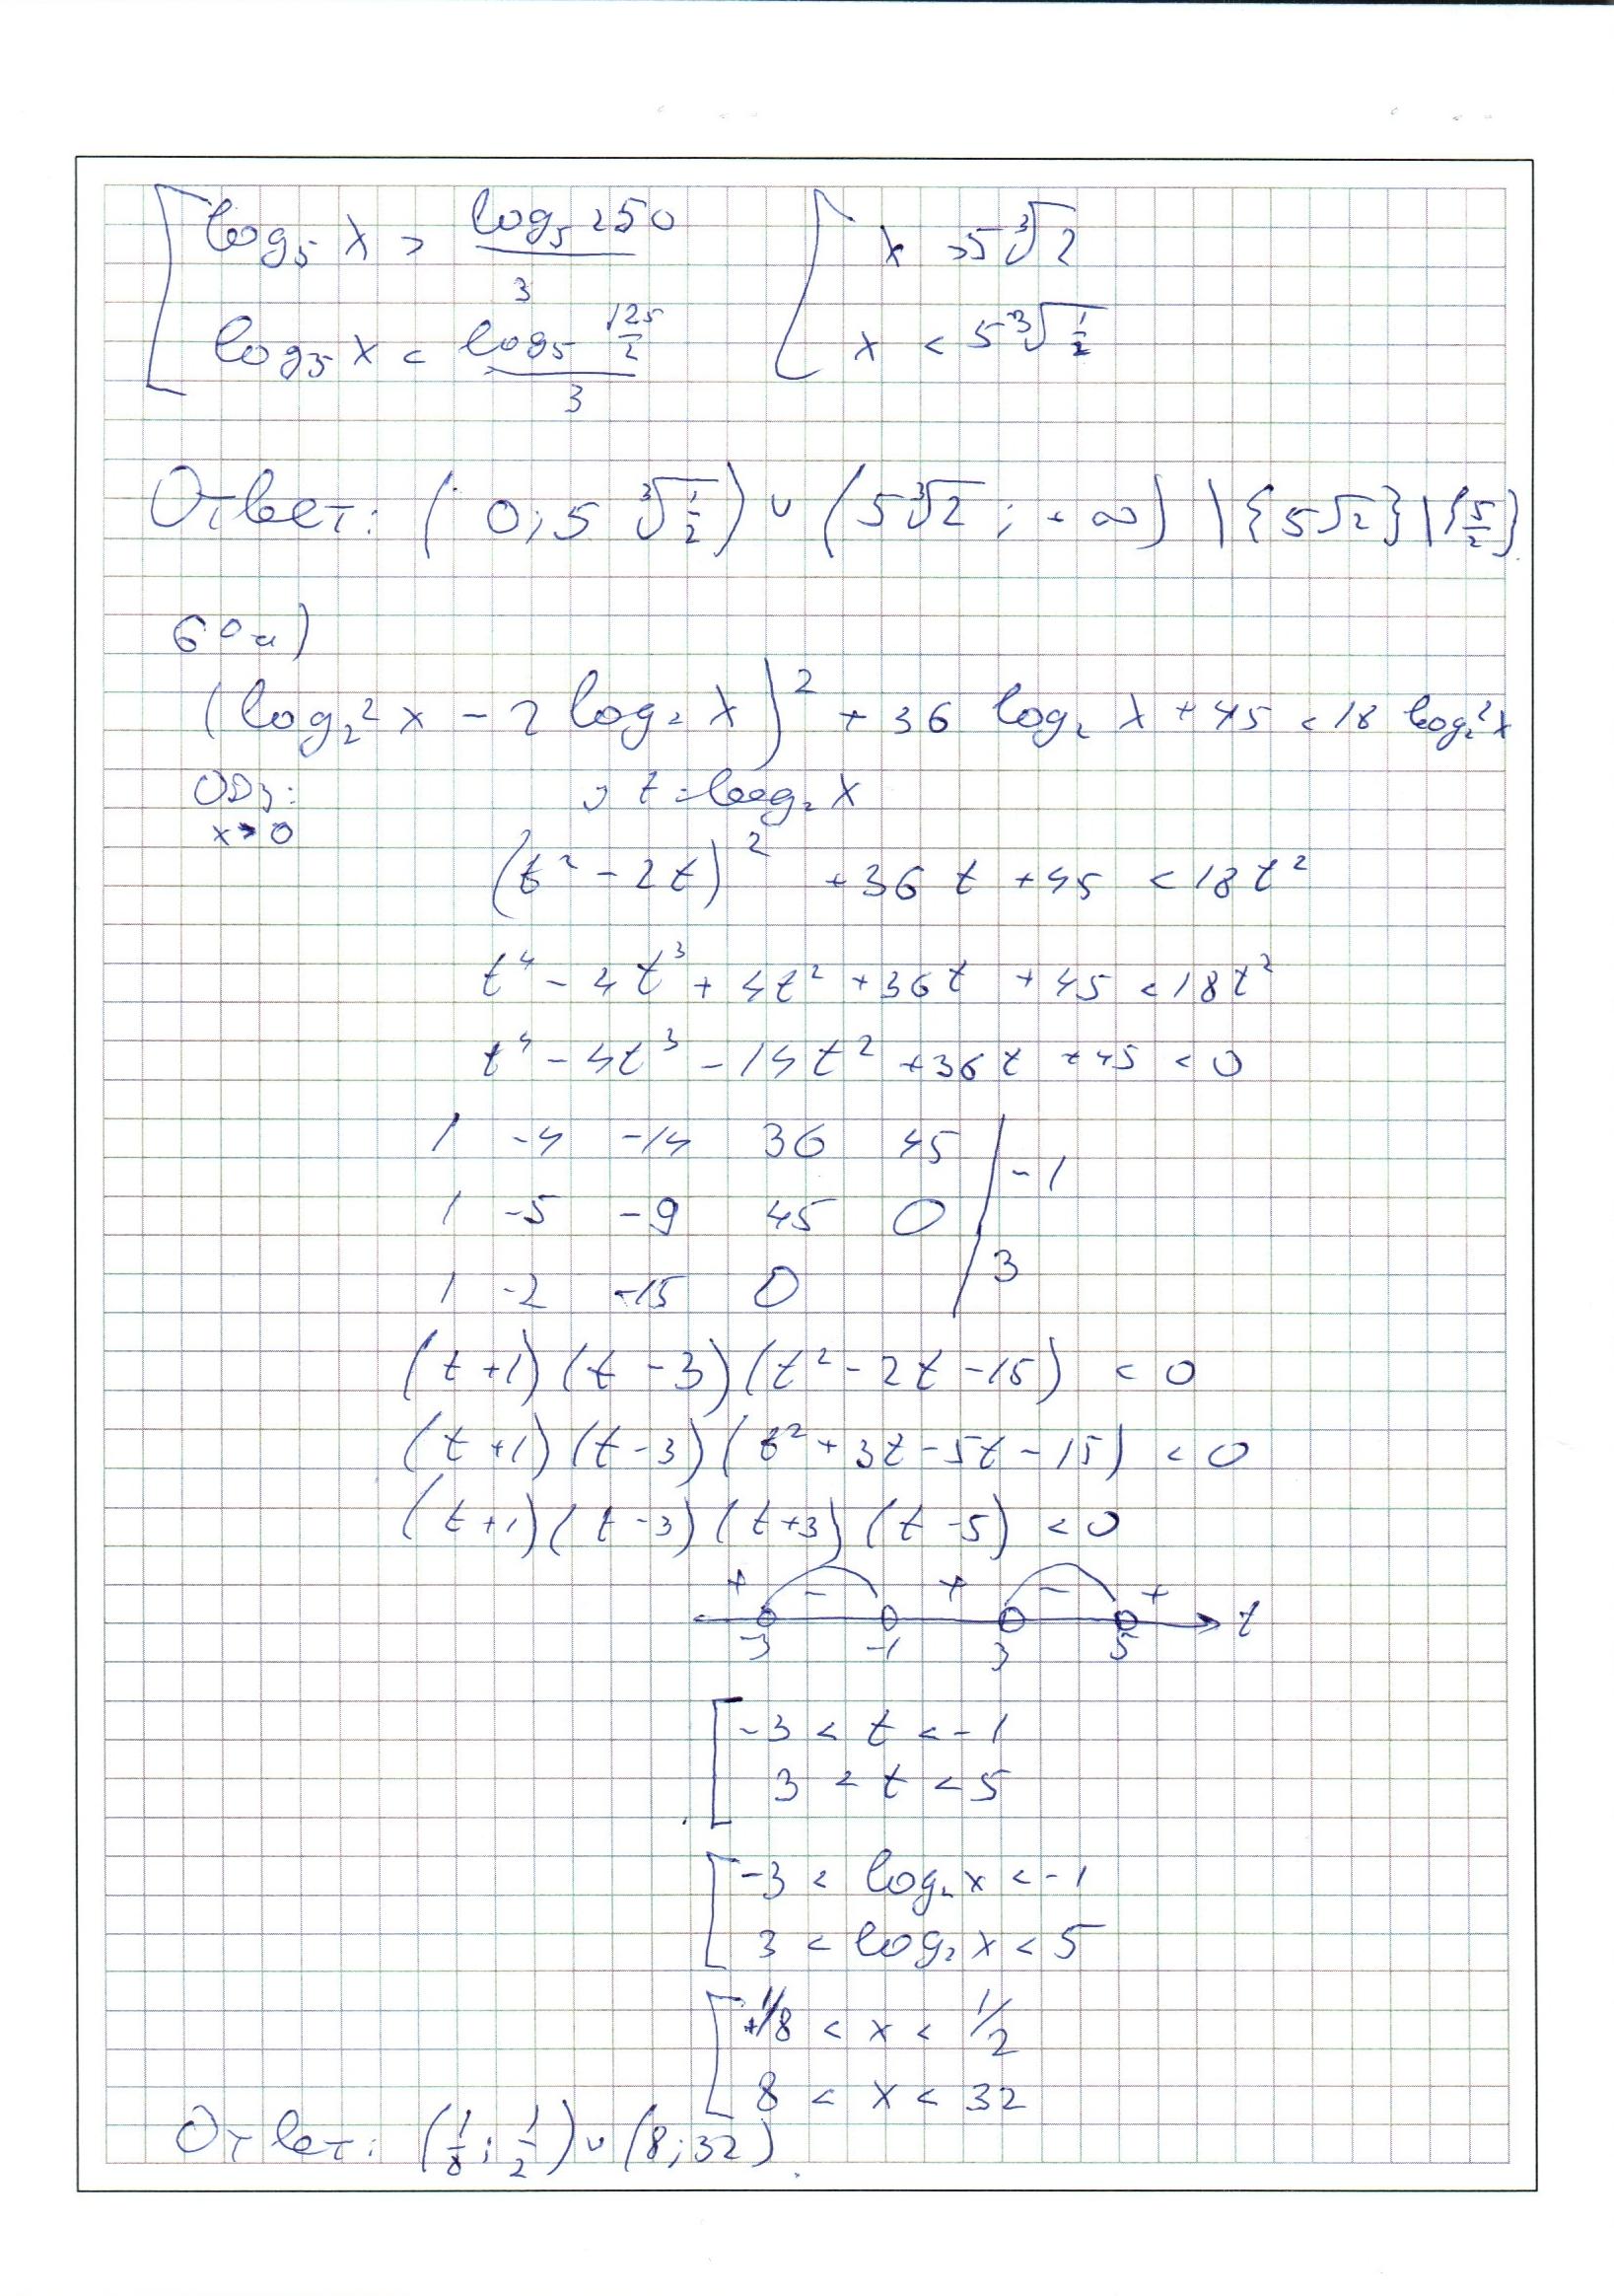 [ log₅ x > log₅ 250 / 3 [ x > 5∛2
log₅ x < log₅ 125/2 / 3 x < 5∛(1/2)
Ответ: (0; 5∛(1/2)) ∪ (5∛2; +∞) \ {5√2} \ {5/2}
60а)
(log₂² x - 2 log₂ x)² + 36 log₂ x + 45 < 18 log₂² x
ОДЗ: t = log₂ x
x > 0
(t² - 2t)² + 36t + 45 < 18t²
t⁴ - 4t³ + 4t² + 36t + 45 < 18t²
t⁴ - 4t³ - 14t² + 36t + 45 < 0
1 -4 -14 36 45 | -1
1 -5 -9 45 0
1 -2 -15 0 | 3
(t+1)(t-3)(t² - 2t - 15) < 0
(t+1)(t-3)(t² + 3t - 5t - 15) < 0
(t+1)(t-3)(t+3)(t-5) < 0
+ - + - +
-3 -1 3 5 t
[ -3 < t < -1
3 < t < 5
[ -3 < log₂ x < -1
3 < log₂ x < 5
[ 1/8 < x < 1/2
8 < x < 32
Ответ: (1/8; 1/2) ∪ (8; 32)